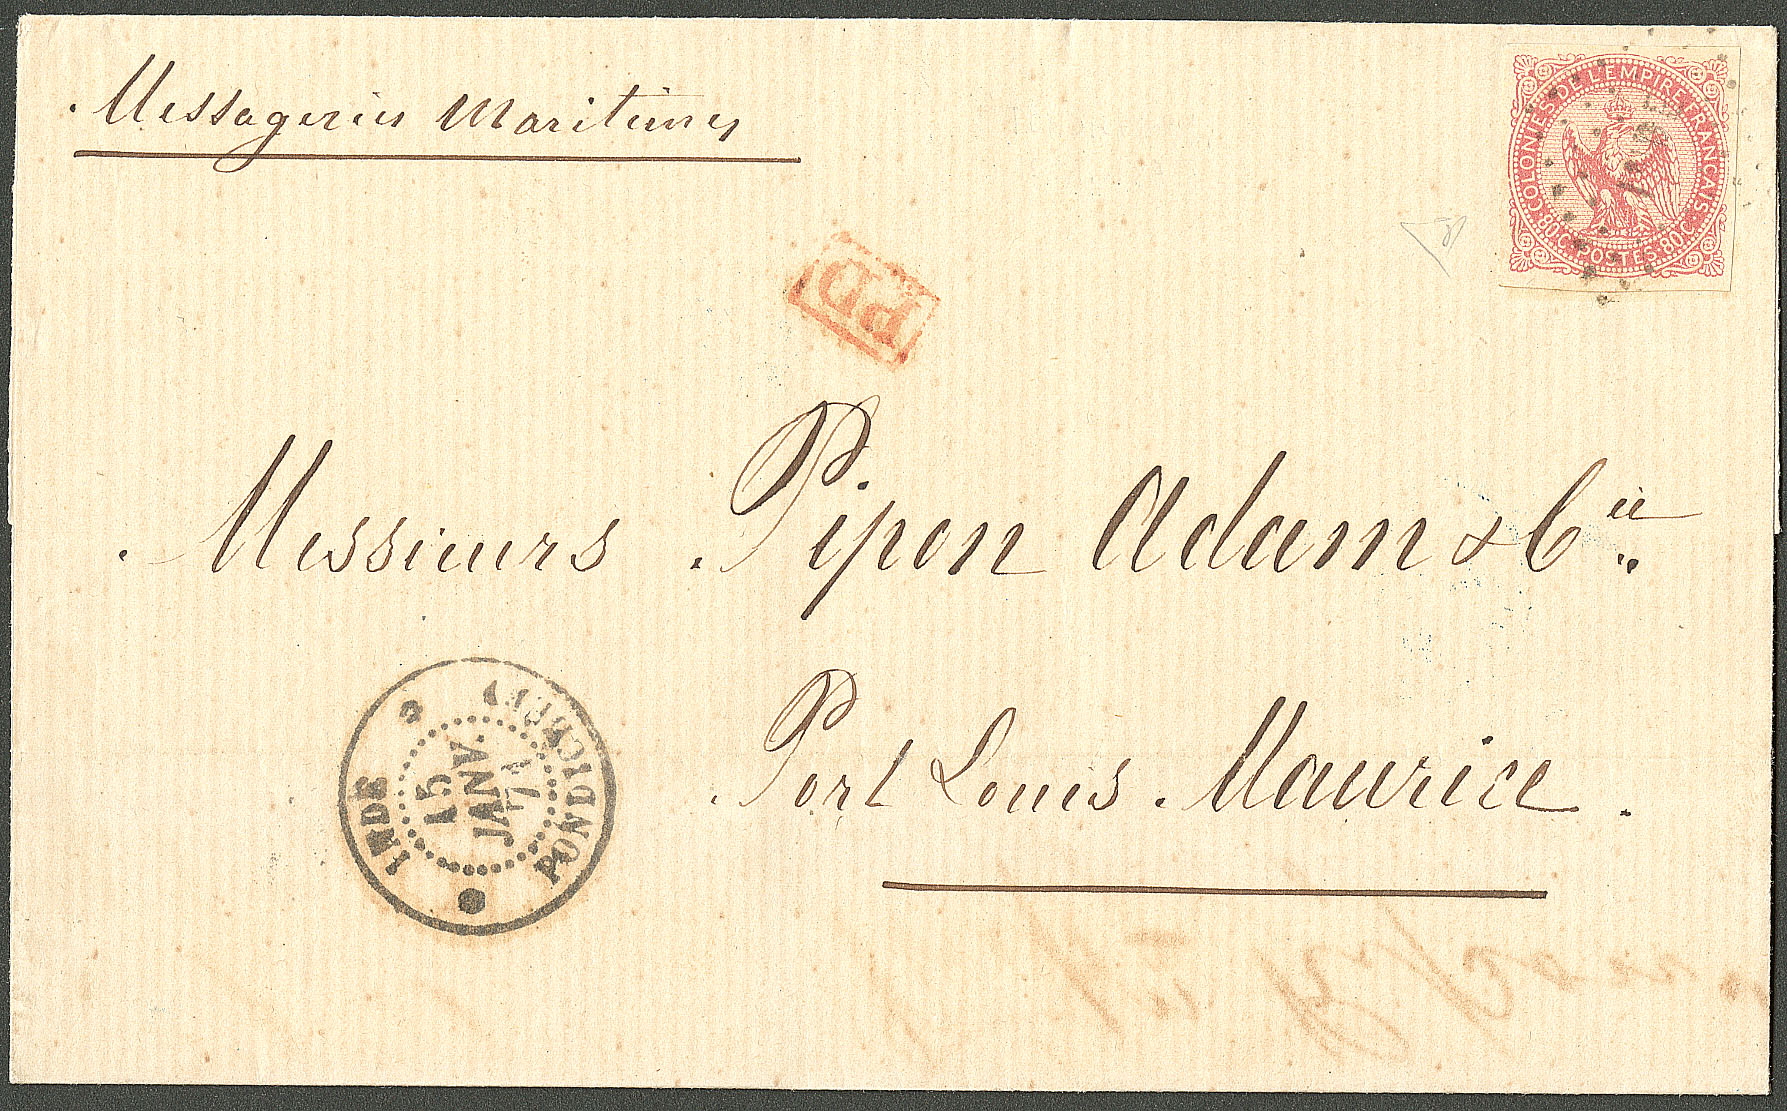 Messageries Maritimes
COLONIES DE L'EMPIRE FRANÇAIS
80C. POSTES 80C.
PD
Messieurs Pipon Adam & Cie
Port Louis. Maurice.
INDE
PONDICHERY
15
JANV.
71